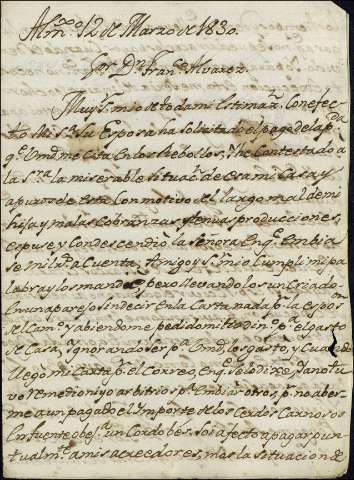 Alm.º 12 de Marzo de 1830.
Sor. Dn. Franco. Alvarez
Muy Sr. mio de toda mi Estimazn. Con efec-
to Mi Sra. su Esposa ha solicitado el pago de la p.da
qe. Vmd me cita en los Rebollos, The Contestado a
la Sra. la miserable situacn. de esa mi Casa y
apuros de esta Con motivo del largo mal de mi
hija y malas Cobranzas y tenuas producciones,
espuse y Condescendio la Señora En qe. embia-
se mil rs. a Cuenta, Amigo y Sr. mio Cumpli mi pa-
labra y los mandé, pero llevandolos un Criado
En un aparejo sin decir En la Carta nada pa. la espos
del Camo. y abiendome pedido mi tto. din.º pa. el gasto
de Casa, Ignorando ser pa. Vmd, los gastó, y Cuando
llego mi Carta pr. el Correo, En qe. se lo dixe, ya no tu-
vo remedio ni yo arbitrio pa. Embiar otros, pr. no aber-
me aun pagado el Importe de los Cerdos Carnosos
En fuente obeja. un Cordobes. Soi afecto a pagar pun-
tualmte. a mis acreedores, mas la Situacion de